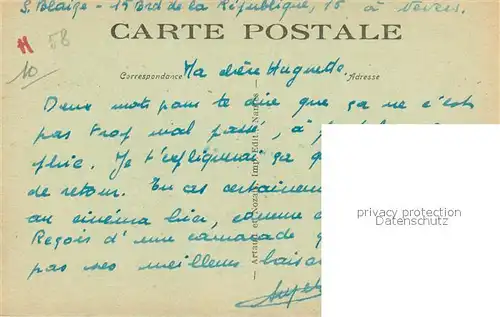 S. Blaise - 15 Bord de la République, 15 à Nevers.
CARTE POSTALE
58
10
Correspondance Ma chère Huguette. Adresse
Deux mots pour te dire que ça ne c'est
pas trop mal passé, à
phie. Je t'expliquerai ça
de retour. En cas
au cinéma hier, comme
Reçois d'une camarade
pas ses meilleurs baisers
Artaud et Nozais Imp. Edit. Nantes
privacy protection
Datenschutz